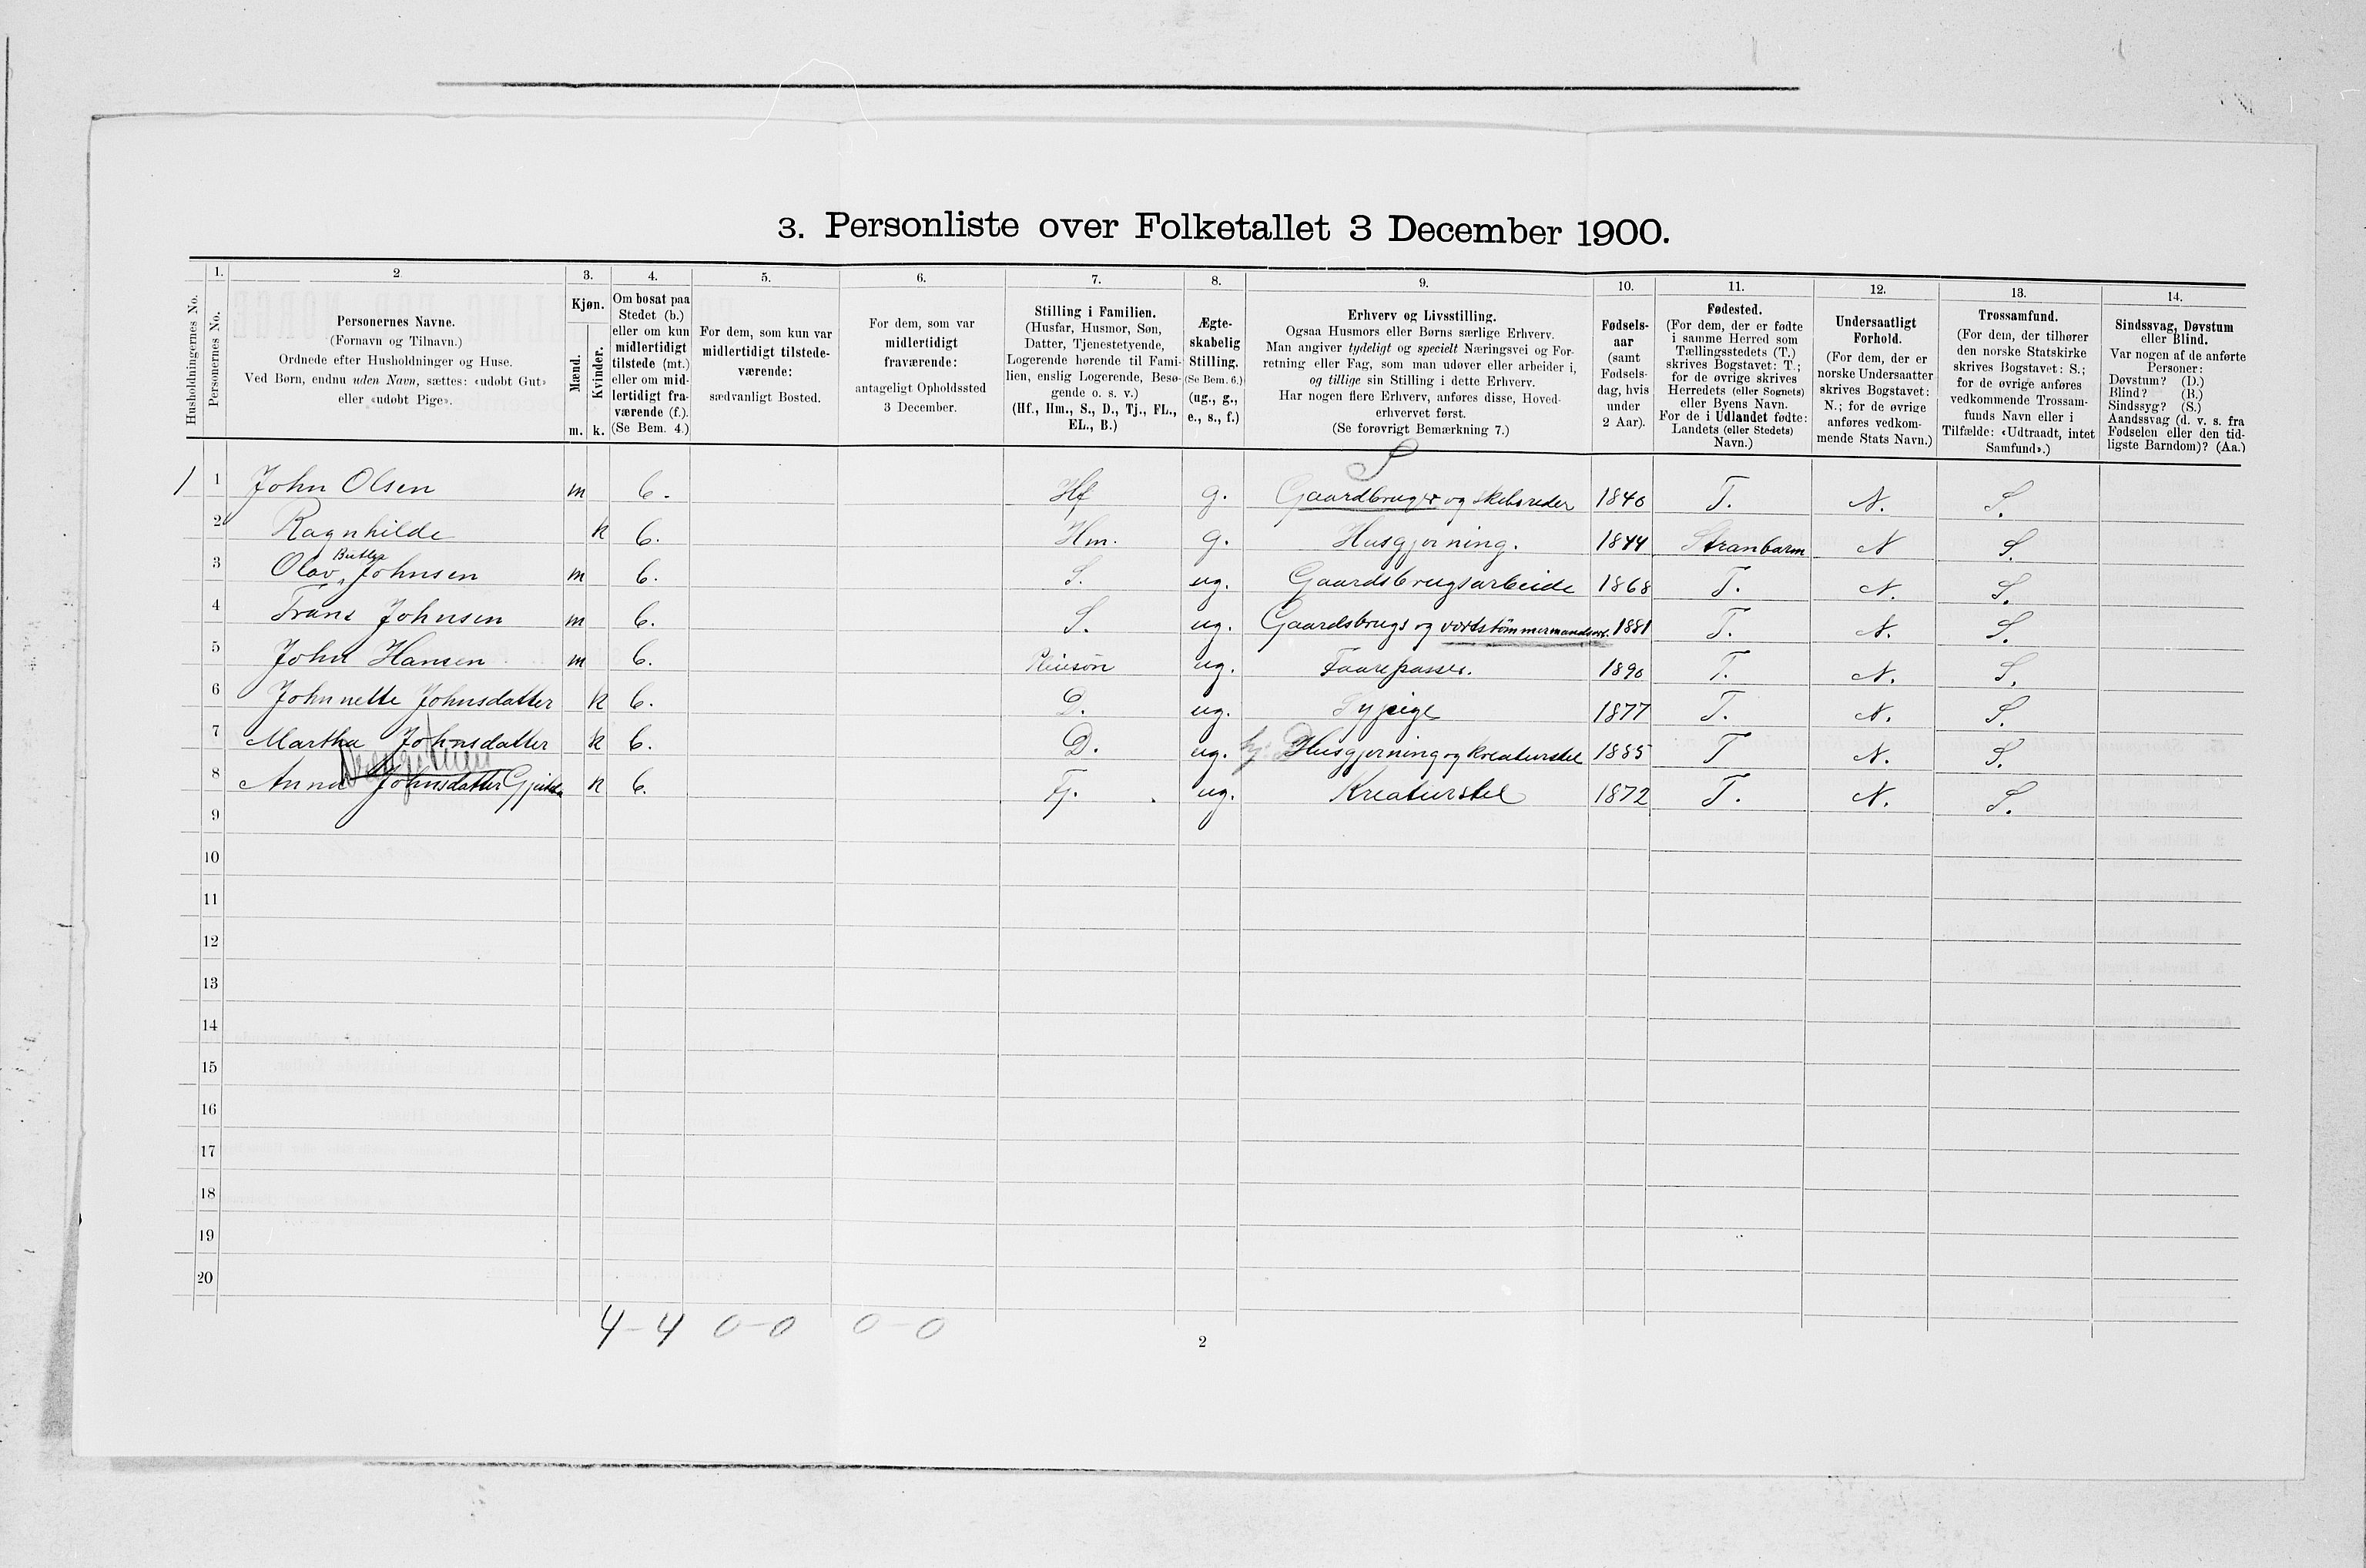 3. Personliste over Folketallet 3 December 1900.
Husholdningernes No.
1.
Personernes No.
2
Personernes Navne.
(Fornavn og Tilnavn.)
Ordnede efter Husholdninger og Huse.
Ved Børn, endnu uden Navn, sættes: «udøbt Gut»
eller «udøbt Pige».
3.
Kjøn.
Mænd.
Kvinder.
m. k.
4.
Om bosat paa
Stedet (b.)
eller om kun
midlertidigt
tilstede (mt.)
eller om mid-
lertidigt fra-
værende (f.).
(Se Bem. 4.)
5.
For dem, som kun var
midlertidigt tilstede-
værende:
sædvanligt Bosted.
6.
For dem, som var
midlertidigt
fraværende:
antageligt Opholdssted
3 December.
7.
Stilling i Familien.
(Husfar, Husmor, Søn,
Datter, Tjenestetyende,
Logerende hørende til Fami-
lien, enslig Logerende, Besø-
gende o. s. v.)
(Hf., Hm., S., D., Tj., FL.,
EL., B.)
8.
Ægte-
skabelig
Stilling.
(Se Bem. 6.)
(ug., g.,
e., s., f.)
9.
Erhverv og Livsstilling.
Ogsaa Husmors eller Børns særlige Erhverv.
Man angiver tydeligt og specielt Næringsvei og For-
retning eller Fag, som man udøver eller arbeider i,
og tillige sin Stilling i dette Erhverv.
Har nogen flere Erhverv, anføres disse, Hoved-
erhvervet først.
(Se forøvrigt Bemærkning 7.)
10.
Fødsels-
aar
(samt
Fødsels-
dag, hvis
under
2 Aar).
11.
Fødested.
(For dem, der er fødte
i samme Herred som
Tællingsstedets (T.)
skrives Bogstavet: T.;
for de øvrige skrives
Herredets (eller Sognets)
eller Byens Navn.
For de i Udlandet fødte:
Landets (eller Stedets)
Navn.)
12.
Undersaatligt
Forhold.
(For dem, der er
norske Undersaatter
skrives Bogstavet:
N.; for de øvrige
anføres vedkom-
mende Stats Navn.)
13.
Trossamfund.
(For dem, der tilhører
den norske Statskirke
skrives Bogstavet: S.;
for de øvrige anføres
vedkommende Trossam-
funds Navn eller i
Tilfælde: «Udtraadt, intet
Samfund».)
14.
Sindssvag, Døvstum
eller Blind.
Var nogen af de anførte
Personer:
Døvstum? (D.)
Blind? (B.)
Sindssyg? (S.)
Aandssvag (d. v. s. fra
Fødselen eller den tid-
ligste Barndom)? (Aa.)
S
1 1 John Olsen m b. Hf g. Gaardbruger og skibsreder 1840 T. N. S.
2 Ragnhilde k b. Hm. g. Husgjerning. 1844 Stranbarm N S.
3 Olav Johnsen m b. S. ug. Gaardsbrugsarbeide 1868 T. N. S.
4 Frans Johnsen m b. S. ug. Gaardsbrugs og 1881 T. N. S.
5 John Hansen m b. Pleiesøn ug. Faarepasser. 1890 T. N. S.
6 Johnnette Johnsdatter k b. D. ug. Sypige 1877 T. N. S.
7 Martha Johnsdatter k b. D. ug. hj. Husgjerning og kreaturstel 1885 T N. S.
8 Anna Johnsdatter k b. Tj. ug. Kreaturstel 1872 T. N. S.
9
10
11
12
13
14
15
16
17
18
19
20
4-4 0-0 0-0
2